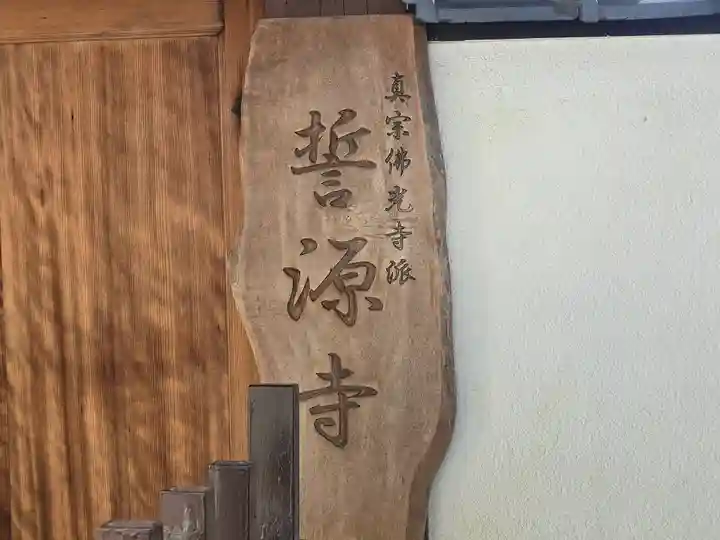 真宗佛光寺派
誓源寺